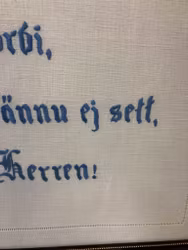 orbi,
ännu ej sett,
Herren!